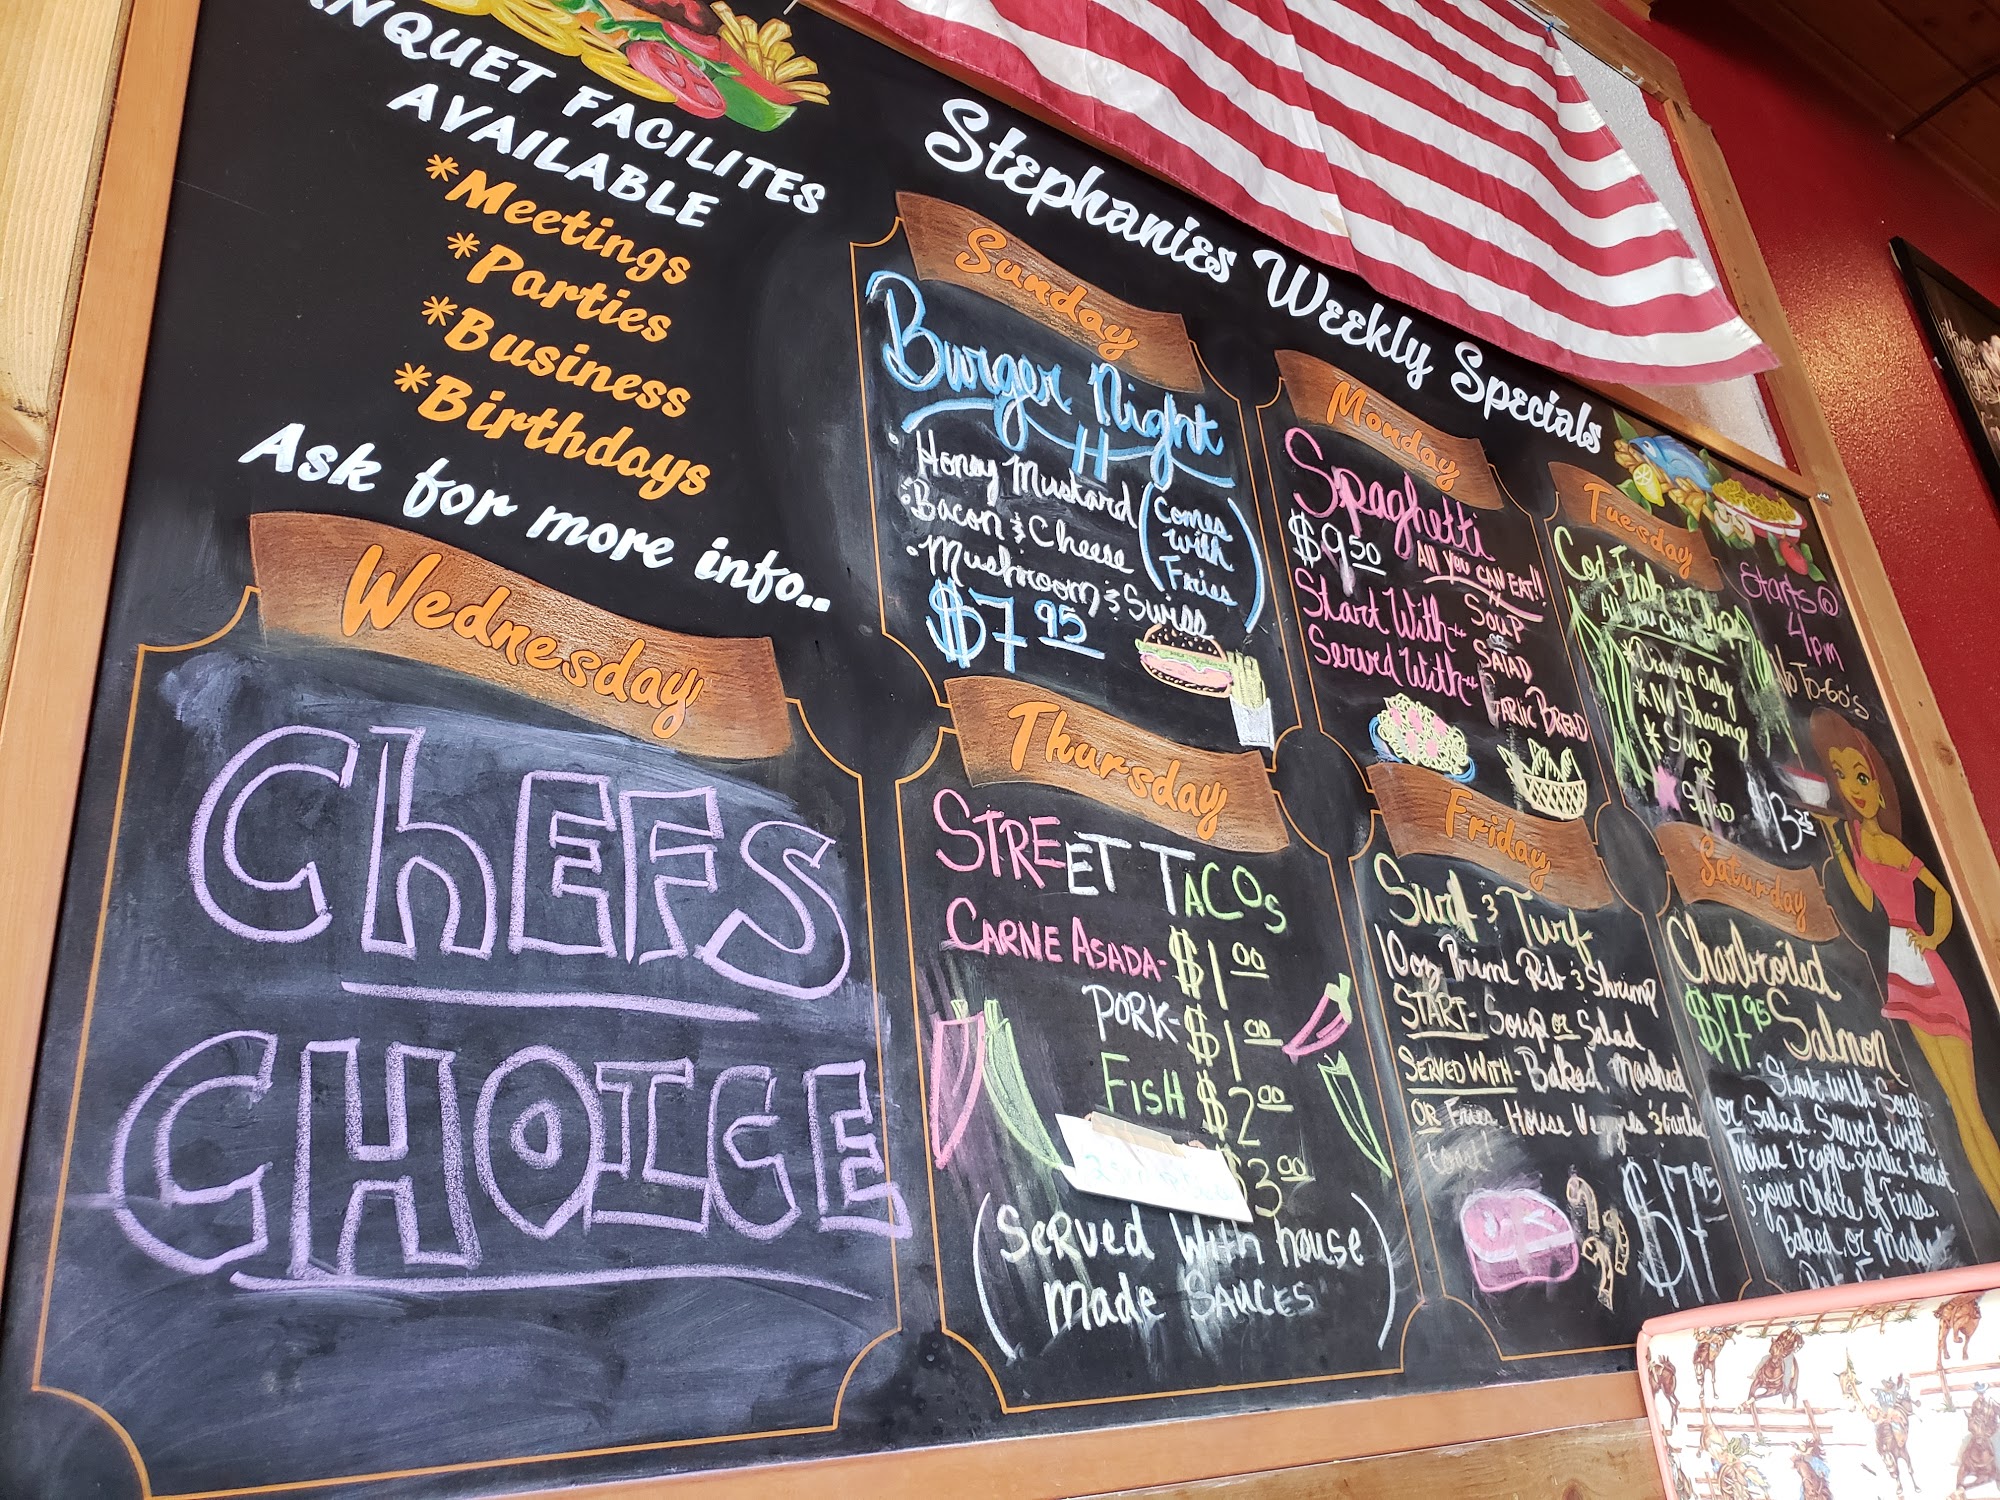 FACILITES
AVAILABLE
*Meetings
*Parties
*Business
*Birthdays
Ask for more info..
Stephanies Weekly Specials
Sunday
Burger Night
Honey Mustard
Bacon & Cheese
Mushroom & Swiss
(Comes
with
Fries)
$7.95
Monday
Spaghetti
$9.50
All YOU CAN EAT!!
Start With → SOUP
OR
SALAD
Served With → GARLIC BREAD
Tuesday
Cod Fish & Chips
All YOU CAN EAT
*Dine-in Only
*No Sharing
*Soup
OR
Salad
$13.25
Starts @
4pm
No To-Go's
Wednesday
CHEFS
CHOICE
Thursday
STREET TACOS
CARNE ASADA- $1.00
PORK- $1.00
FISH $2.00
$3.00
(SeRved With house
made SAUCES)
Friday
Surf & Turf
10oz Prime Rib & Shrimp
START- Soup or Salad
SERVED WITH- Baked, Mashed
OR Fries, House Veggies & Garlic
toast!
$17.95
Saturday
Charbroiled
$17.95 Salmon
Start with Soup
or Salad. Served with
House Veggie, garlic toast
& your Choice of Fries,
Baked, or Mashed